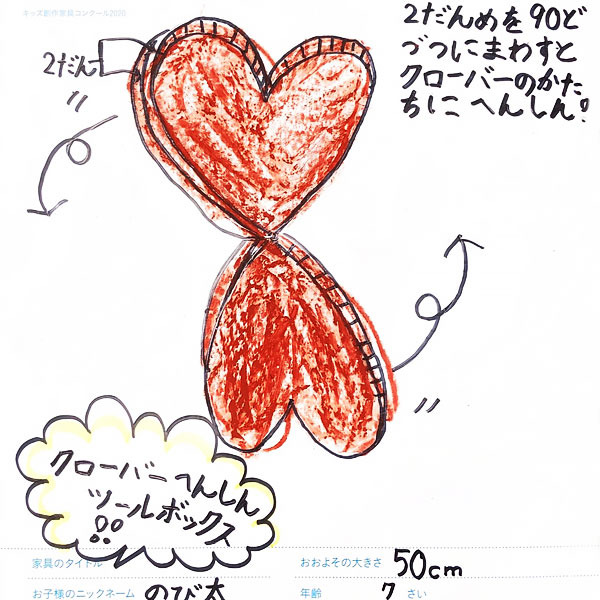 キッズ創作家具コンクール2020
2だんめを90ど
づつにまわすと
クローバーのかた
ちにへんしん!
2だん
クローバーへんしん
ツールボックス
!!
家具のタイトル
おおよその大きさ 50cm
お子様のニックネーム のび太
年齢 7 さい